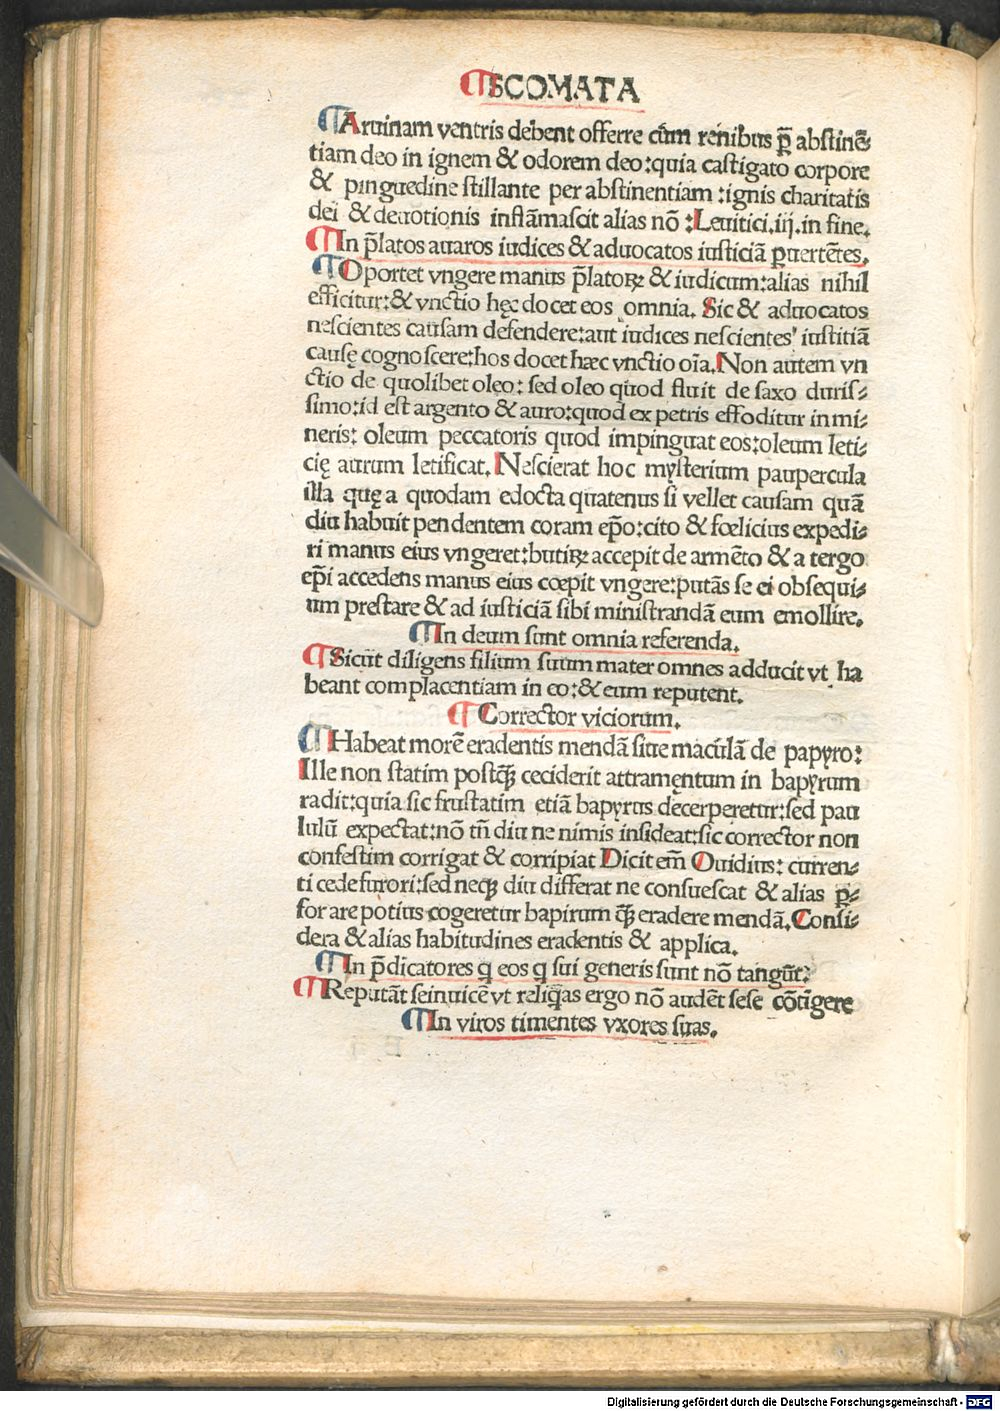 ¶SCOMATA
¶Aruinam ventris debent offerre cūm renibus p̄ abstinē⸗
tiam deo in ignem & odorem deo:quia castigato corpore
& pinguedine stillante per abstinentiam :ignis charitatis
dei & deuotionis inflāmascit alias nō :Leuitici.iij.in fine.
¶In p̄latos auaros iudices & aduocatos iusticiā ꝑuertētes.
¶Oportet vngere manus p̄latoꝝ & iudicum:alias nihil
efficitur:& vnctio hęc docet eos omnia. Sic & aduocatos
nescientes causam defendere:aut iudices nescientes' iustitiā
causę cognoscere:hos docet hæc vnctio oīa.Non autem vn
ctio de quolibet oleo: sed oleo quod fluit de saxo duris⸗
simo:id est argento & auro:quod ex petris effoditur in mi⸗
neris: oleum peccatoris quod impinguat eos:oleum leti⸗
cię aurum letificat. Nescierat hoc mysterium paupercula
illa quę a quodam edocta quatenus si vellet causam quā
diu habuit pendentem coram ep̄o:cito & fœlicius expedi⸗
ri manus eius vngeret:butiꝝ accepit de armēto & a tergo
ep̄i accedens manus eius cœpit vngere:putās se ei obsequi⸗
um prestare & ad iusticiā sibi ministrandā eum emollire.
¶In deum sunt omnia referenda.
¶Sicut diligens filium suum mater omnes adducit vt ha
beant complacentiam in eo:& eum reputent.
¶Corrector viciorum.
¶Habeat morē eradentis mendā siue maculā de papyro:
Ille non statim postꝙ̄ ceciderit attramęntum in bapyrum
radit:quia sic frustatim etiā bapyrus decerperetur:sed pau
lulū expectat:nō tn̄ diu ne nimis insideat:sic corrector non
confestim corrigat & corripiat Dicit em̄ Ouidius: curren⸗
ti cede furori:sed necꝫ diu differat ne consuescat & alias ꝑ⸗
forare potius cogeretur bapirum ꝙ̄ eradere mendā.Consi⸗
dera & alias habitudines eradentis & applica.
¶In p̄dicatores q eos q sui generis sunt nō tangūt:
¶Reputāt seinuicē vt reliq̄as ergo nō audēt sese cōtīgere
¶In viros timentes vxores suas.
Digitalisierung gefördert durch die Deutsche Forschungsgemeinschaft - DFG